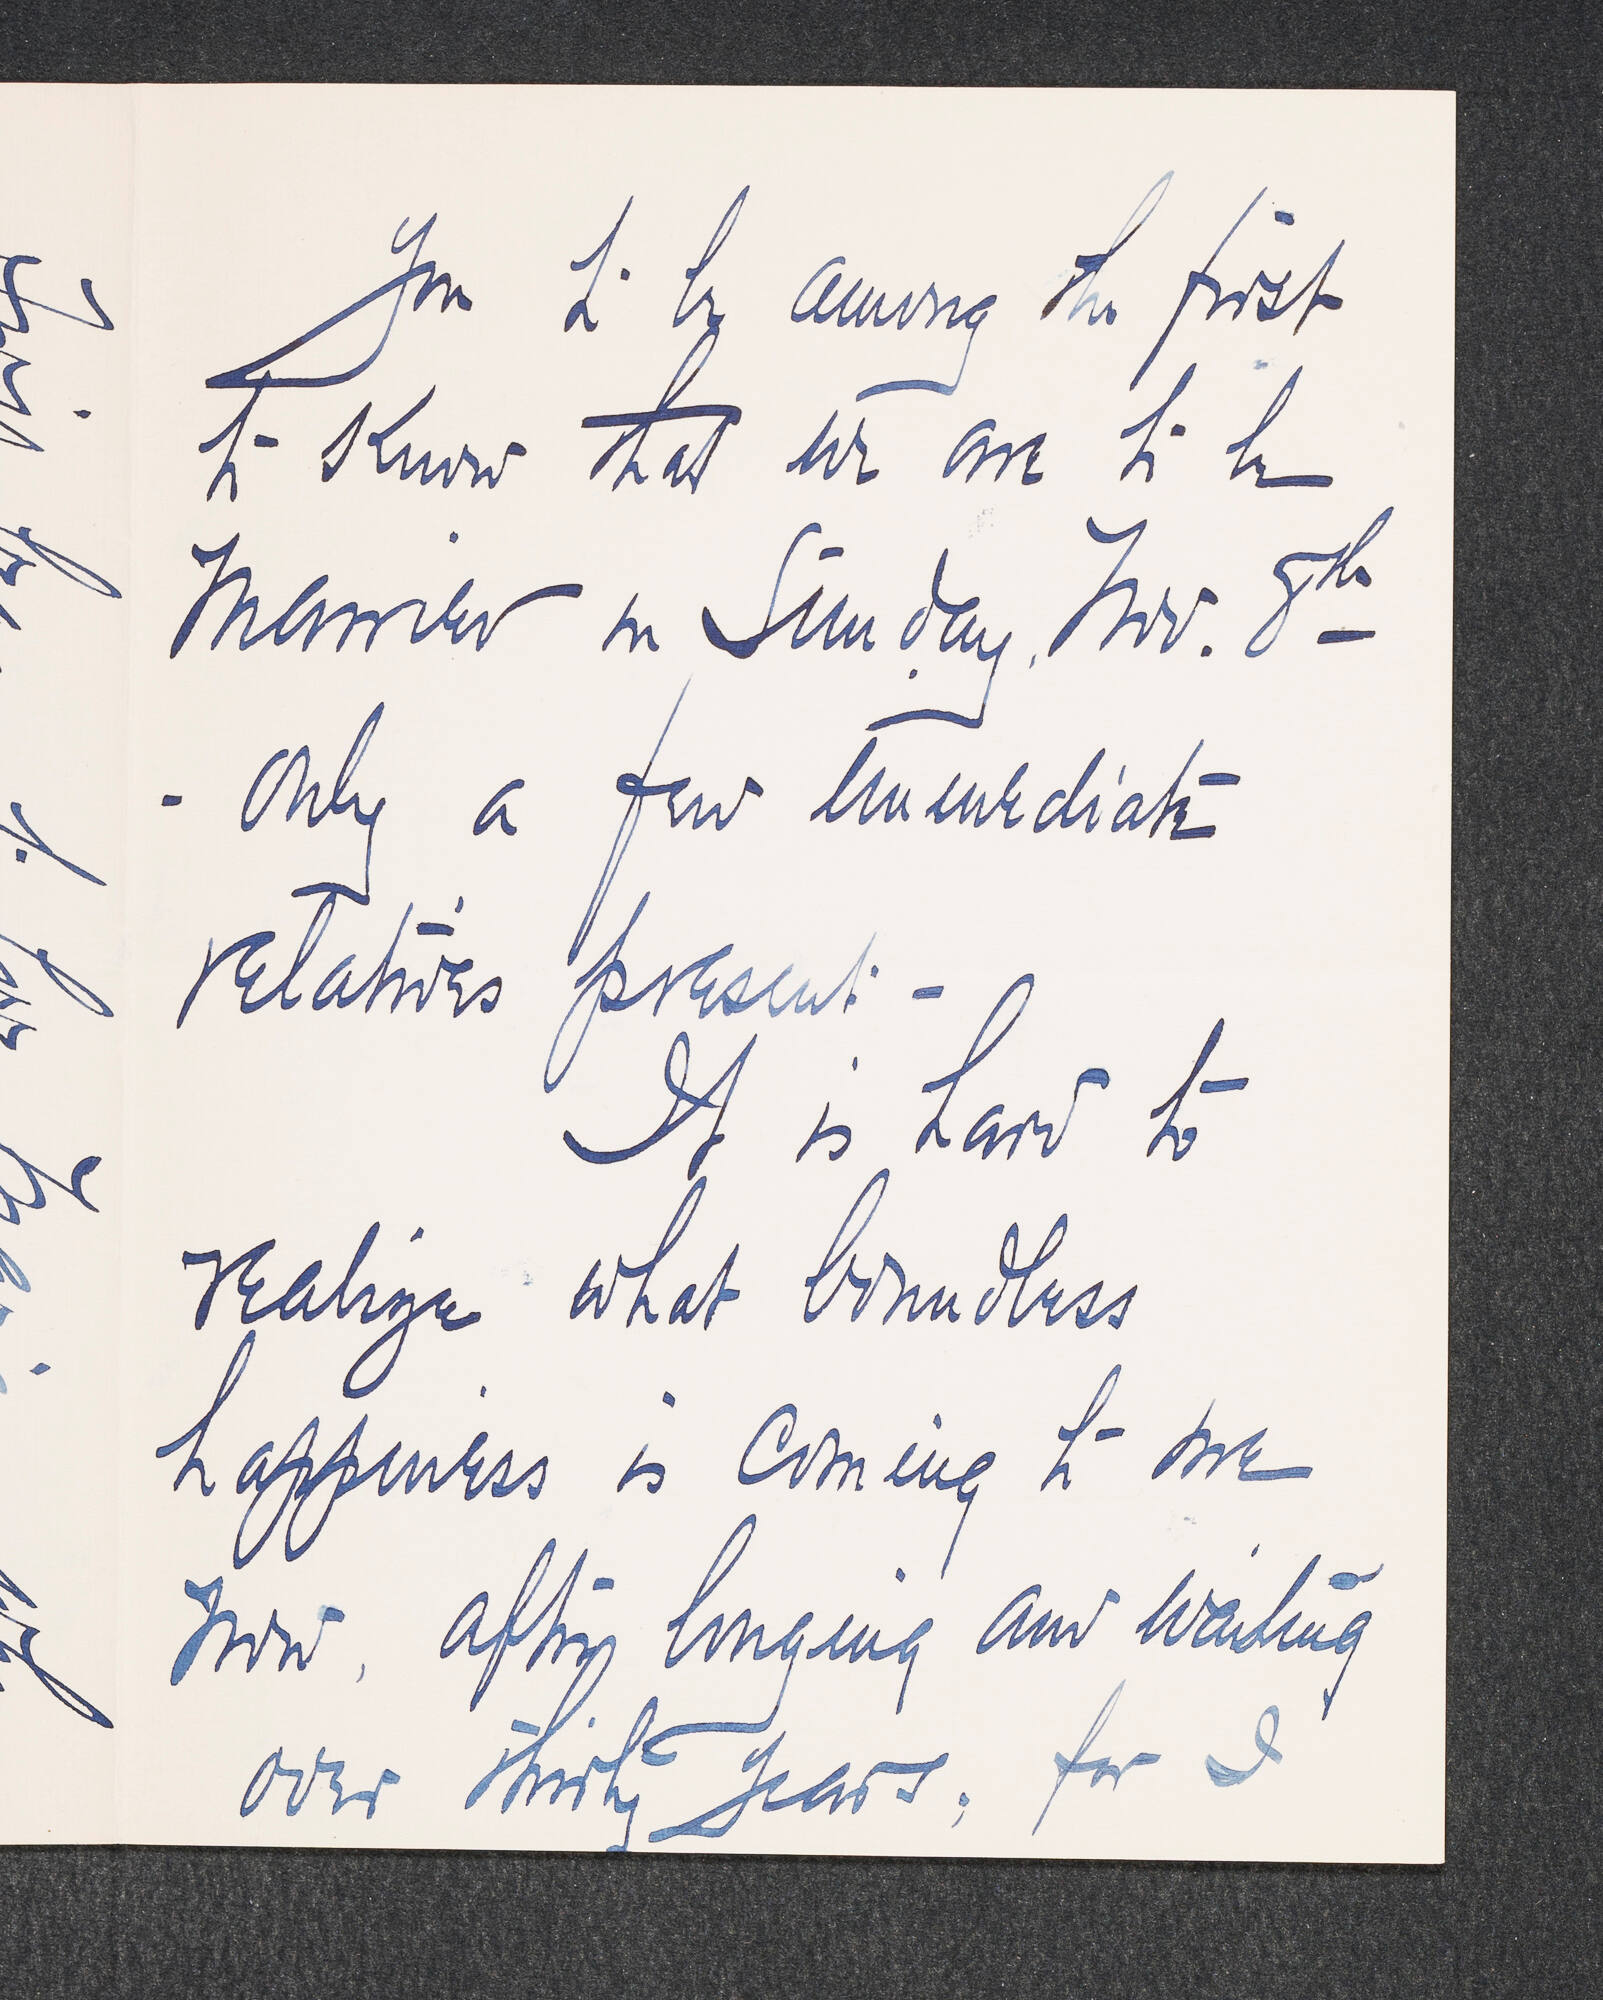 you to be among the first
to know that we are to be
married on Sunday, Nov. 8th
- only a few immediate
relatives present -
It is hard to
realize what boundless
happiness is coming to me
now, after longing and waiting
over thirty years, for I